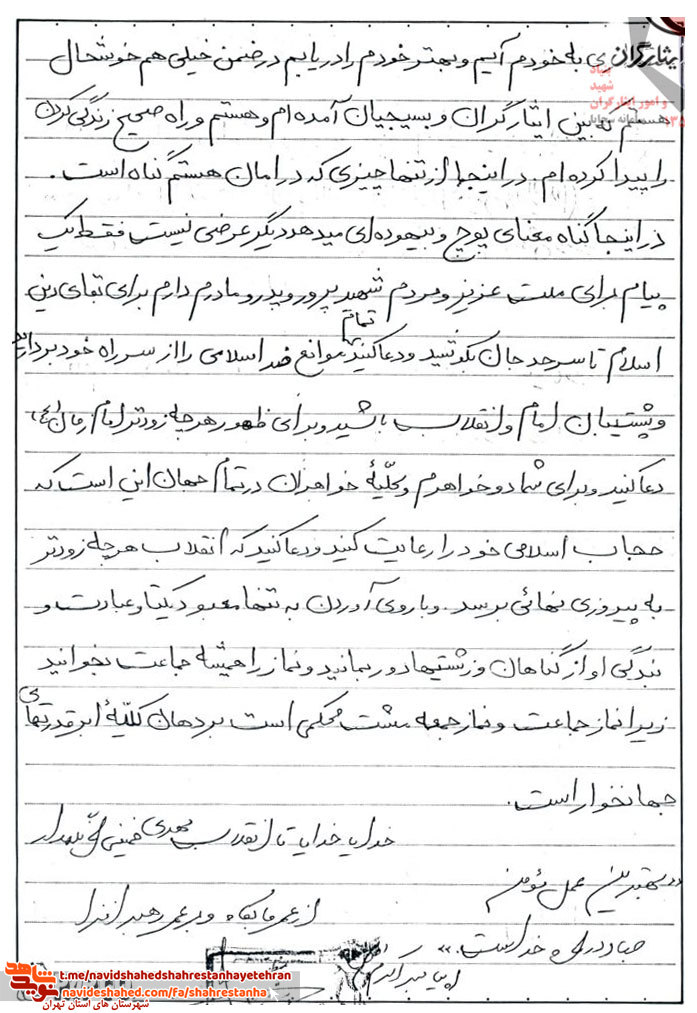 ی به خودم آئیم و بهتر خودم را دریابم در ضمن خیلی هم خوشحال
هستم که بین ایثارگران و بسیجیان آمده ام و هستم و راه صحیح زندگی کردن
را پیدا کرده ام. در اینجا از تنها چیزی که در امان هستم گناه است.
در اینجا گناه معنای پوچ و بیهوده ای میدهد دیگر عرضی نیست فقط یک
پیام برای ملت عزیز و مردم شهید پرور و پدر و مادرم دارم برای بقای دین
اسلام تا سر حد جان بکوشید و دعا کنید تمام موانع ضد اسلامی را از سر راه خود بردارید
و پشتیبان امام و انقلاب باشید و برای ظهور هر چه زودتر امام زمان (ع)
دعا کنید و برای شما دو خواهرم و کلیّهٔ خواهران در تمام جهان این است که
حجاب اسلامی خود را رعایت کنید و دعا کنید که انقلاب هر چه زودتر
به پیروزی نهائی برسد. و با روی آوردن به تنها معبود یکتا و عبادت و
بندگی او از گناهان و زشتیها دور بمانید و نماز را همیشه جماعت بخوانید
زیرا نماز جماعت و نماز جمعه مشت محکمی است بر دهان کلیّهٔ ابرقدرتهای
جهانخوار است.
خدایا خدایا تا انقلاب مهدی خمینی را نگهدار
«بهترین عمل مؤمن
از عمر ما بکاه و بر عمر رهبر افزا
جهاد در راه خداست.»
پیامبر اکرم
ایثارگران
بنیاد
شهید
و امور ایثارگران
نوید شاهد
t.me/navidshahedshahrestanhayetehran
navideshahed.com/fa/shahrestanha
شهرستان های استان تهران